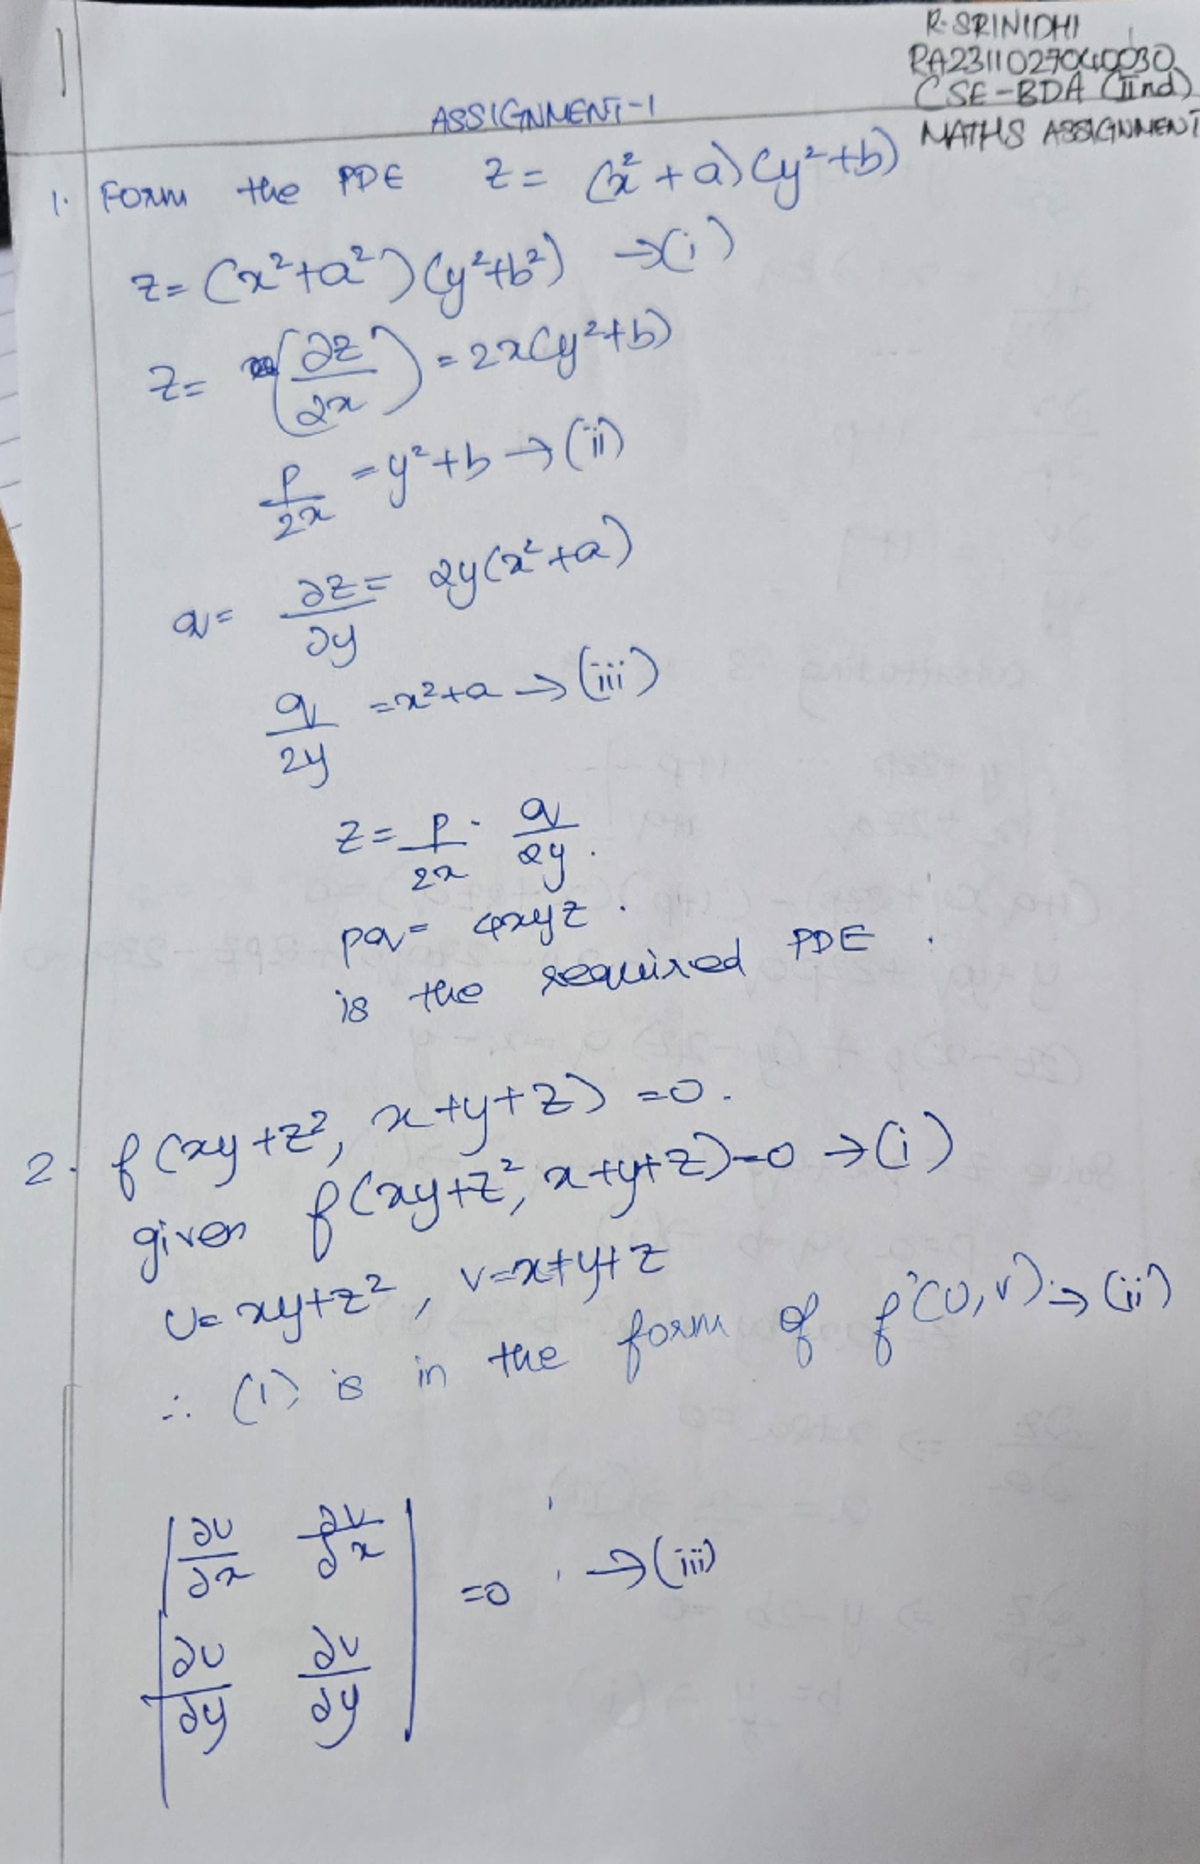 R. SRINIDHI
RA2311027040030
CSE-BDA (IInd)
MATHS ASSIGNMENT
ASSIGNMENT-1
1. Form the PDE z = (x²+a)(y²+b)
z = (x²+a²)(y²+b²) →(i)
z = (∂z/2x) = 2x(y²+b)
p/2x = y²+b → (ii)
q = ∂z/∂y = 2y(x²+a)
q/2y = x²+a → (iii)
z = p/2x · q/2y.
pq = 4xyz.
is the required PDE.
2. f(xy+z², x+y+z) = 0.
given f(xy+z², x+y+z) = 0 → (i)
U = xy+z², V = x+y+z
∴ (1) is in the form of f(U,V) → (ii)
| ∂U/∂x ∂V/∂x |
| ∂U/∂y ∂V/∂y | = 0 → (iii)